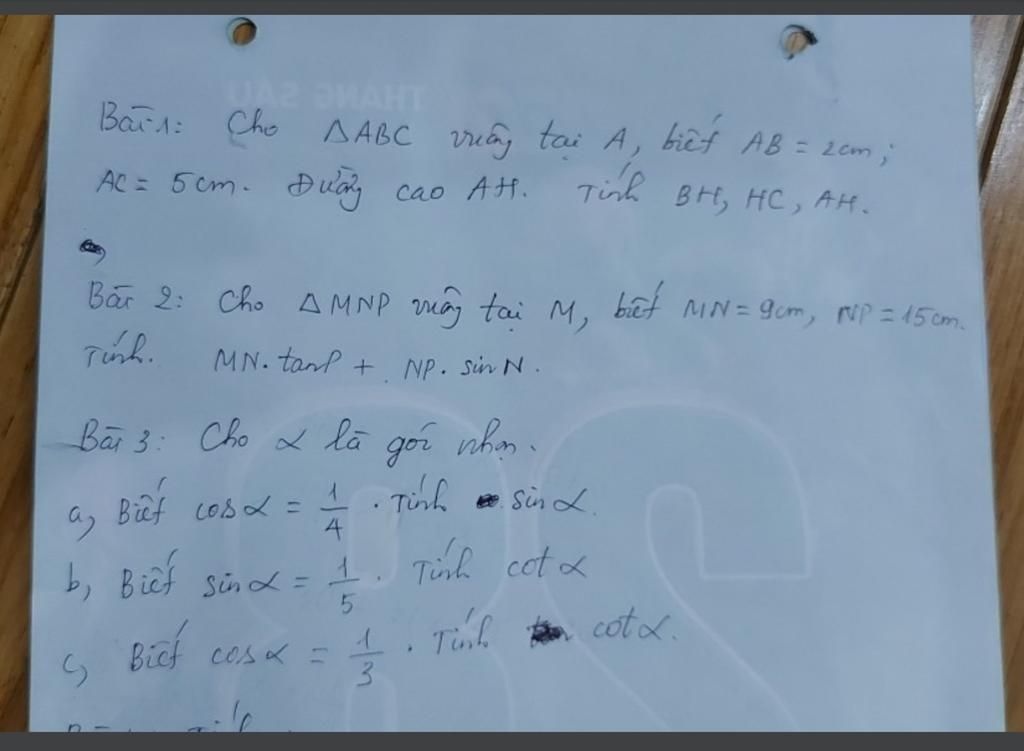 THANG SÁU
Bài 1: Cho △ABC vuông tại A, biết AB = 2cm;
AC = 5cm. Đường cao AH. Tính BH, HC, AH.
Bài 2: Cho △MNP vuông tại M, biết MN = 9cm, NP = 15cm.
Tính. MN. tanP + NP. sin N.
Bài 3: Cho α là góc nhọn.
a, Biết cos α = 1/4. Tính sin α.
b, Biết sin α = 1/5. Tính cot α
c, Biết cos α = 1/3. Tính cot α.
28